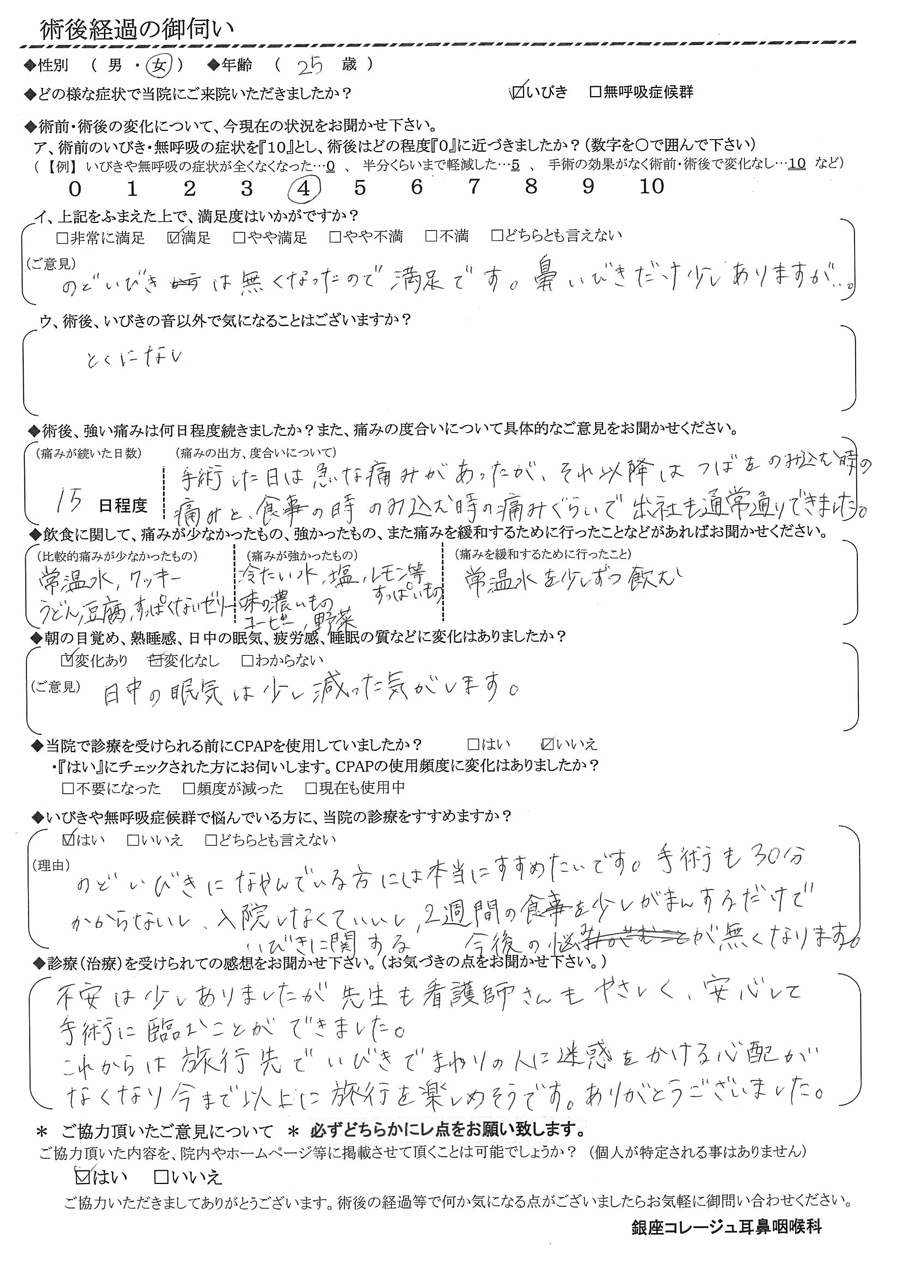 術後経過の御伺い
◆性別 ( 男 ・ 女 ) ◆年齢 ( 25 歳 )
◆どの様な症状で当院にご来院いただきましたか? ☑いびき □無呼吸症候群
◆術前・術後の変化について、今現在の状況をお聞かせ下さい。
ア、術前のいびき・無呼吸の症状を『10』とし、術後はどの程度『0』に近づきましたか?(数字を〇で囲んで下さい)
(【例】いびきや無呼吸の症状が全くなくなった…0 、 半分くらいまで軽減した…5 、 手術の効果がなく術前・術後で変化なし…10 など)
0 1 2 3 4 5 6 7 8 9 10
イ、上記をふまえた上で、満足度はいかがですか?
□非常に満足 ☑満足 □やや満足 □やや不満 □不満 □どちらとも言えない
(ご意見)
のどいびきは無くなったので満足です。鼻いびきだけ少しありますが…。
ウ、術後、いびきの音以外で気になることはございますか?
とくになし
◆術後、強い痛みは何日程度続きましたか?また、痛みの度合いについて具体的なご意見をお聞かせください。
(痛みが続いた日数) (痛みの出方、度合いについて)
手術した日は急な痛みがあったが、それ以降はつばをのみ込む時の
15 日程度 痛みと、食事の時のみ込む時の痛みぐらいで出社も通常通りできました。
◆飲食に関して、痛みが少なかったもの、強かったもの、また痛みを緩和するために行ったことなどがあればお聞かせください。
(比較的痛みが少なかったもの) (痛みが強かったもの) (痛みを緩和するために行ったこと)
常温水、クッキー 冷たい水、塩、レモン等 常温水を少しずつ飲む
うどん、豆腐、すっぱくないゼリー 味の濃いもの すっぱいもの
コーヒー、野菜
◆朝の目覚め、熟睡感、日中の眠気、疲労感、睡眠の質などに変化はありましたか?
☑変化あり □変化なし □わからない
(ご意見) 日中の眠気は少し減った気がします。
◆当院で診療を受けられる前にCPAPを使用していましたか? □はい ☑いいえ
・『はい』にチェックされた方にお伺いします。CPAPの使用頻度に変化はありましたか?
□不要になった □頻度が減った □現在も使用中
◆いびきや無呼吸症候群で悩んでいる方に、当院の診療をすすめますか?
☑はい □いいえ □どちらとも言えない
(理由)
のどいびきになやんでいる方には本当にすすめたいです。手術も30分
かからないし、入院しなくていいし、2週間の食事を少しがまんするだけで
いびきに関する 今後の悩みが無くなります。
◆診療(治療)を受けられての感想をお聞かせ下さい。(お気づきの点をお聞かせ下さい。)
不安は少しありましたが先生も看護師さんもやさしく、安心して
手術に臨むことができました。
これからは旅行先でいびきでまわりの人に迷惑をかける心配が
なくなり今まで以上に旅行を楽しめそうです。ありがとうございました。
* ご協力頂いたご意見について * 必ずどちらかにレ点をお願い致します。
ご協力頂いた内容を、院内やホームページ等に掲載させて頂くことは可能でしょうか? (個人が特定される事はありません)
☑はい □いいえ
ご協力いただきましてありがとうございます。術後の経過等で何か気になる点がございましたらお気軽に御問い合わせください。
銀座コレージュ耳鼻咽喉科